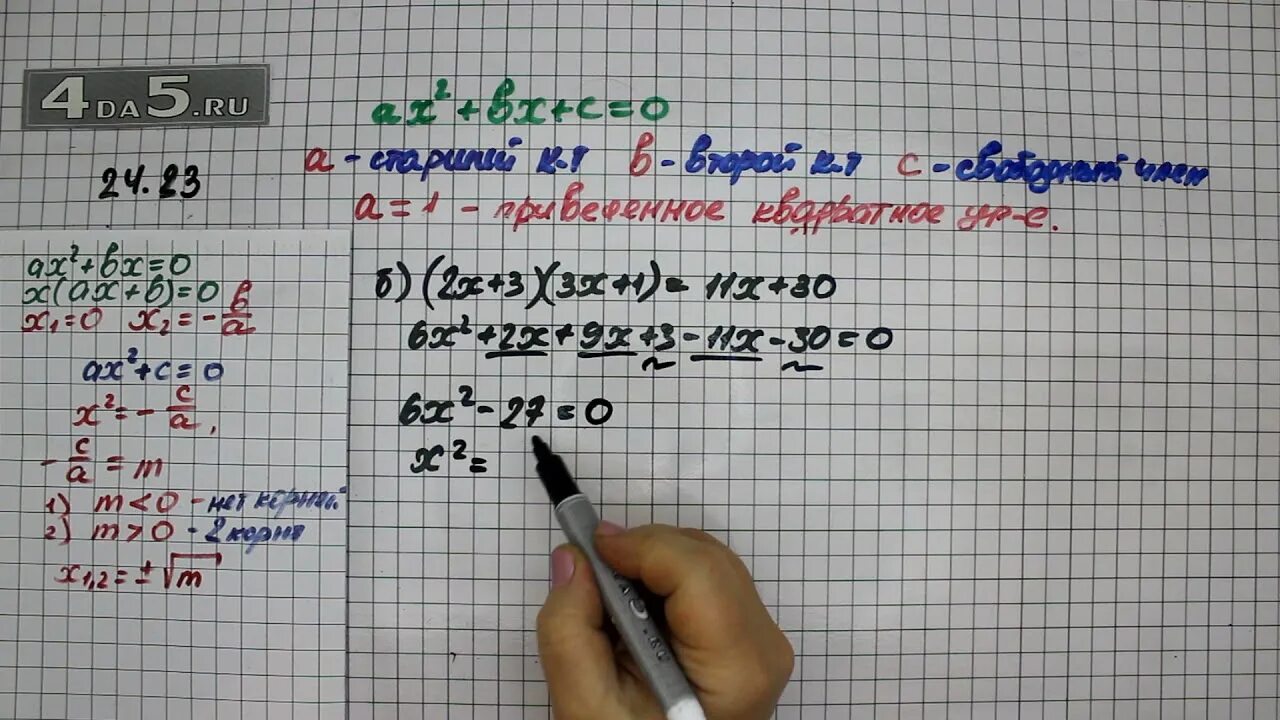 4DA5.RU
ax² + bx + c = 0
a - старший к.т b - второй к.т c - свободный член
24.23
a = 1 - приведенное квадратное ур-е.
ax² + bx = 0
x(ax + b) = 0
x₁ = 0 x₂ = - b/a
ax² + c = 0
x² = - c/a,
- c/a = m
1) m < 0 - нет корней
2) m > 0 - 2 корня
x₁,₂ = ± √m
б) (2x + 3)(3x + 1) = 11x + 30
6x² + 2x + 9x + 3 - 11x - 30 = 0
6x² - 27 = 0
x² =